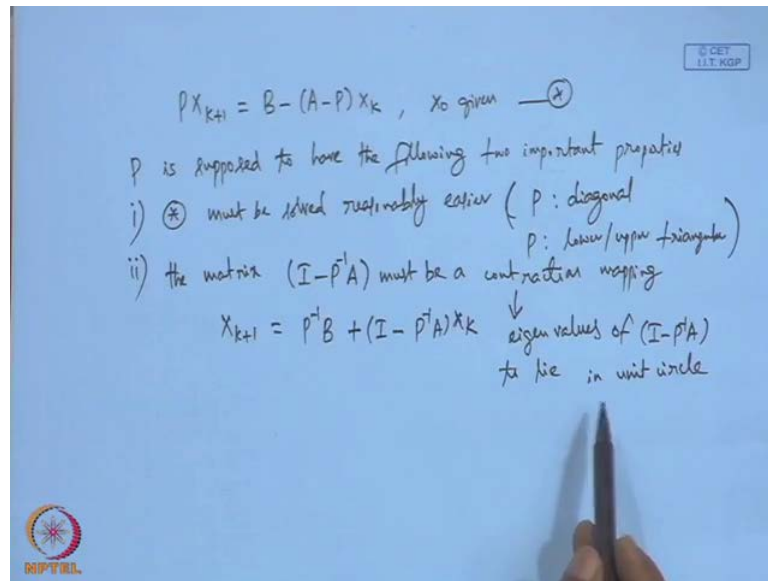 © CET
I.I.T. KGP
PX_{k+1} = B - (A-P) X_k , X_0 given —(*)
P is supposed to have the following two important properties
i) (*) must be solved reasonably easier ( P : diagonal
P : lower/upper triangular )
ii) the matrix (I - P^{-1}A) must be a contraction mapping
X_{k+1} = P^{-1}B + (I - P^{-1}A) X_k ↓ eigen values of (I - P^{-1}A)
to lie in unit circle
NPTEL